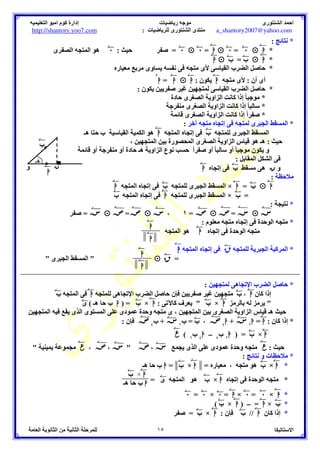 احمد الشنتورى موجه رياضيات إدارة كوم أمبو التعليميه
a_shantory2007@yahoo.com منتدى الشنتورى للرياضيات : http://shantory.yoo7.com
* نتائج :
* أ ⊙ ٠ = ٠ ⊙ أ = ٠ ⊙ ٠ = صفر حيث : ٠ هو المتجه الصفرى
* أ ⊙ ب = ب ⊙ أ
* حاصل الضرب القياسى لأى متجه فى نفسه يساوى مربع معياره
أى أن : لأى متجه أ يكون : أ ⊙ أ = أ٢
* حاصل الضرب القياسى لمتجهين غير صفريين يكون :
* موجباً إذا كانت الزاوية الصغرى حادة
* سالباً إذا كانت الزاوية الصغرى منفرجة
* صفراً إذا كانت الزاوية الصغرى قائمة
* المسقط الجبرى لمتجه فى إتجاه متجه آخر :
المسقط الجبرى للمتجه ب فى إتجاه المتجه أ هو الكمية القياسية ب حتا هـ
حيث : هـ هو قياس الزاوية الصغرى المحصورة بين المتجهين ،
و يكون موجباً أو سالباً أو صفراً حسب نوع الزاوية هـ حادة أو منفرجة أو قائمة
فى الشكل المقابل :
و ب هى مسقط ب فى إتجاه أ
ملاحظة :
أ ⊙ ب = أ × المسقط الجبرى للمتجه ب فى إتجاه المتجه أ
= ب × المسقط الجبرى للمتجه أ فى إتجاه المتجه ب
* نتيجة :
* س ⊙ س = ص ⊙ ص = ١ ، س ⊙ ص = ص ⊙ س = صفر
* متجه الوحدة فى إتجاه متجه معلوم :
متجه الوحدة فى إتجاه أ هو المتجه أ / || أ ||
* المركبة الجبرية للمتجه ق فى إتجاه المتجه أ
= ق ⊙ أ / || أ || " المسقط الجبرى "
* حاصل الضرب الإتجاهى لمتجهين :
إذا كان أ ، ب متجهين غير صفريين فإن حاصل الضرب الإتجاهى للمتجه أ فى المتجه ب
" يرمز له بالرمز أ × ب " يعرف كالآتى : أ × ب = ( أ ب حا هـ ) ى
حيث هـ قياس الزاوية الصغرى بين المتجهين ، ى متجه وحدة عمودى على المستوى الذى يقع فيه المتجهين
* إذا كان : أ = أ١ س + أ٢ ص ، ب = ب١ س + ب٢ ص فإن :
أ × ب = ( أ١ ب٢ – أ٢ ب١ ) ع
حيث : ع متجه وحدة عمودى على الذى يجمع س ، ص " س ، ص ، ع مجموعة يمينية "
* ملاحظات و نتائج :
* أ × ب هو متجه ، معياره = || أ × ب || = أ ب حا هـ
* متجه الوحدة فى إتجاه أ × ب هو المتجه ى = أ × ب / أ ب حا هـ
* أ × ٠ = ٠ × أ = ٠ × ٠ = ٠
* ب × أ = – ( أ × ب )
* إذا كان أ // ب فإن : أ × ب = صفر
الاستاتيكا ١٧ للمرحلة الثانية من الثانوية العامة